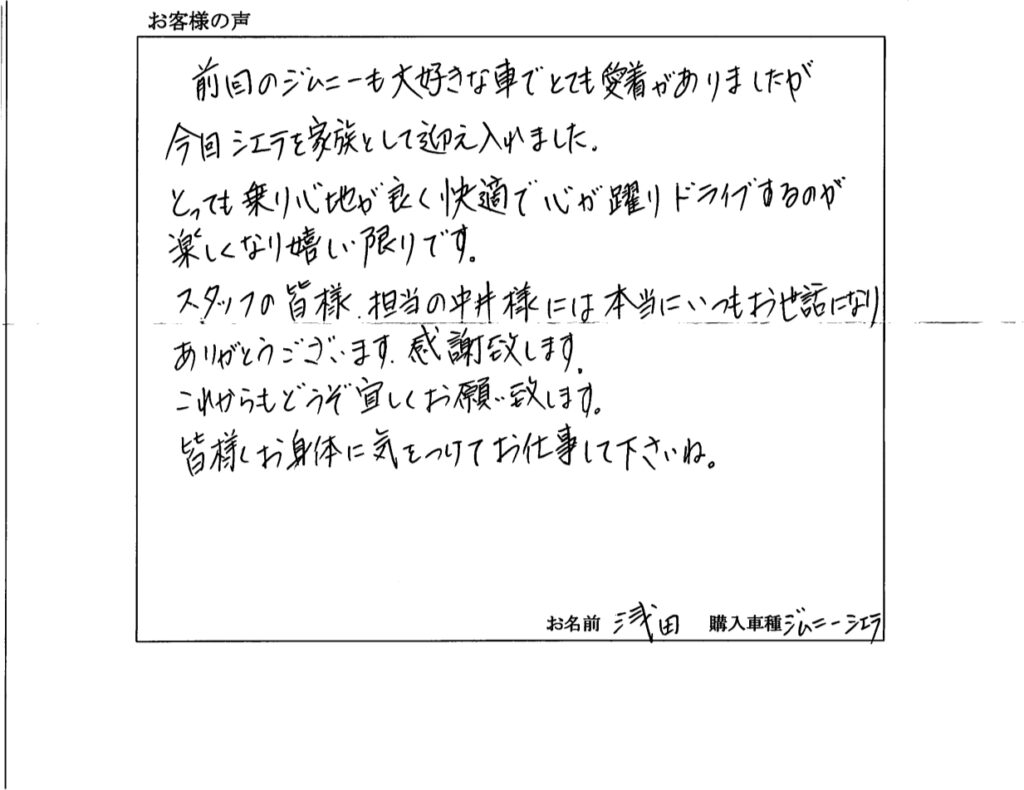 お客様の声
前回のジムニーも大好きな車でとても愛着がありましたが
今回シエラを家族として迎え入れました.
とっても乗り心地が良く快適で心が躍りドライブするのが
楽しくなり嬉しい限りです。
スタッフの皆様.担当の中井様には本当にいつもお世話になり
ありがとうございます.感謝致します.
これからもどうぞ宜しくお願い致します。
皆様もお身体に気をつけてお仕事して下さいね。
お名前 浅田 購入車種 ジムニーシエラ